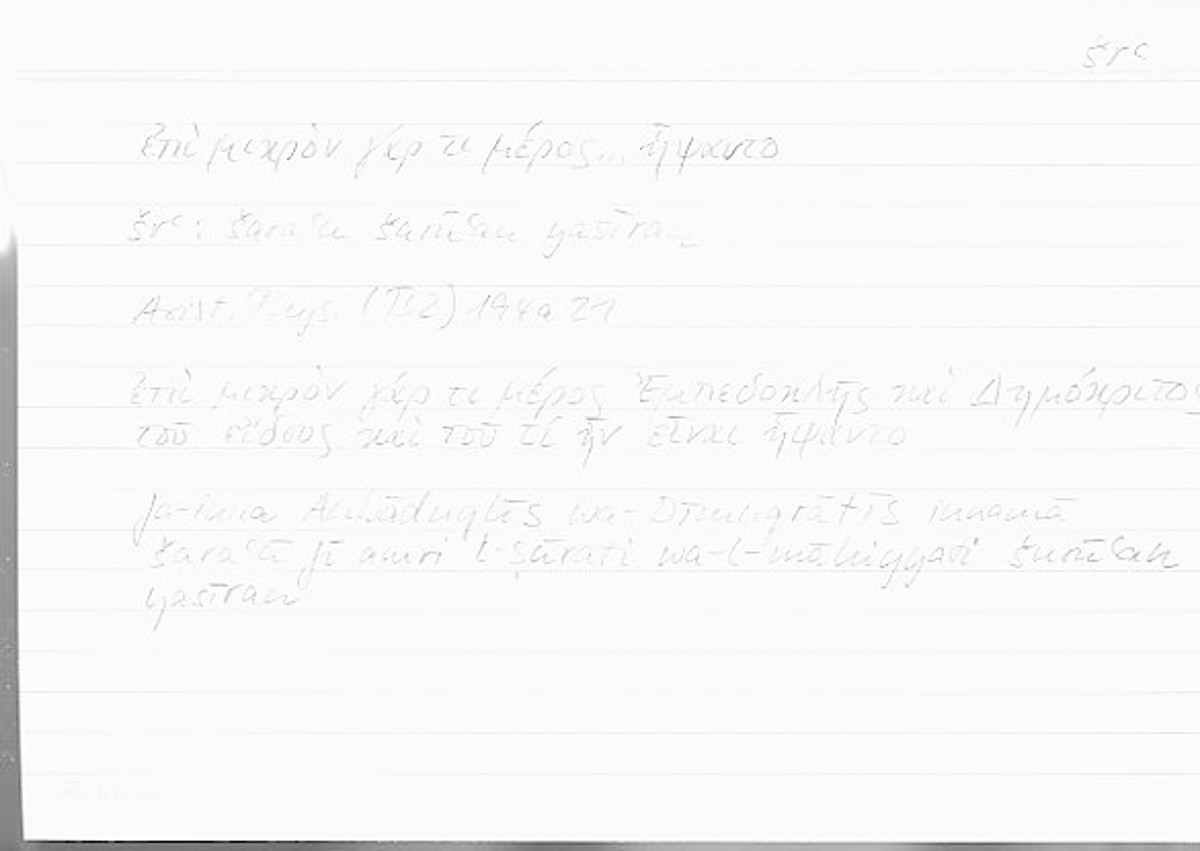 šrʿ
ἐπὶ μικρὸν γάρ τι μέρος... ἥψαντο
šrʿ: šaraʿa šurūʿan yasīran
Arist. Phys. (B2) 194a 21
ἐπὶ μικρὸν γάρ τι μέρος Ἐμπεδοκλῆς καὶ Δημόκριτος
τοῦ εἴδους καὶ τοῦ τί ἦν εἶναι ἥψαντο
fa-inna Anbāduqlīs wa-Dīmuqrāṭīs innamā
šaraʿā fī amri l-ṣūrati wa-l-māhiyyati šurūʿan
yasīran